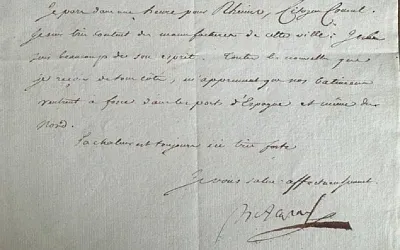 Je pars dans une heure pour Reims, Citoyen Consul.
Je suis très content des manufactures de cette ville : Je
suis beaucoup de son esprit. Toutes les nouvelles que
je reçois de tous côtés, m'apprennent que nos bâtimens
rentrent à force dans les ports d'Espagne et même du
Nord.
La chaleur est toujours ici très forte
Je vous salue affectueusement.